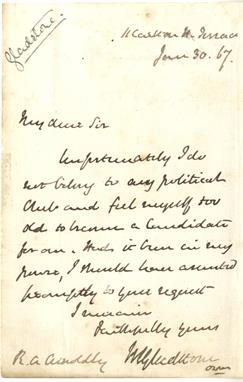 Gladstone.
11 Carlton H. Terrace
Jan 30. 67.
My dear Sir
Unfortunately I do
not belong to any political
Club and feel myself too
old to become a Candidate
for one. Had it been in my
power, I should have assented
promptly to your request
I remain
Faithfully yours
WEGladstone
R. A.